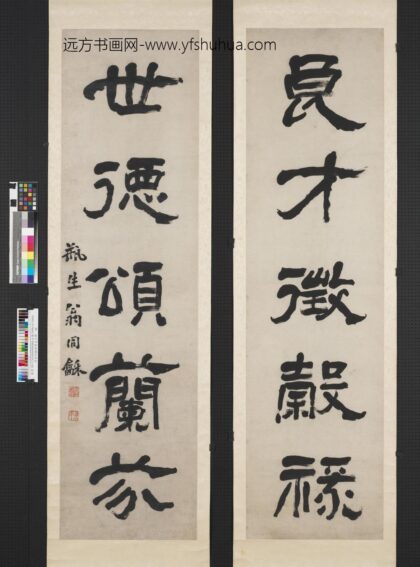 远方书画网-www.yfshuhua.com
良才徵穀祿
世德頌蘭芬
瓶生翁同龢